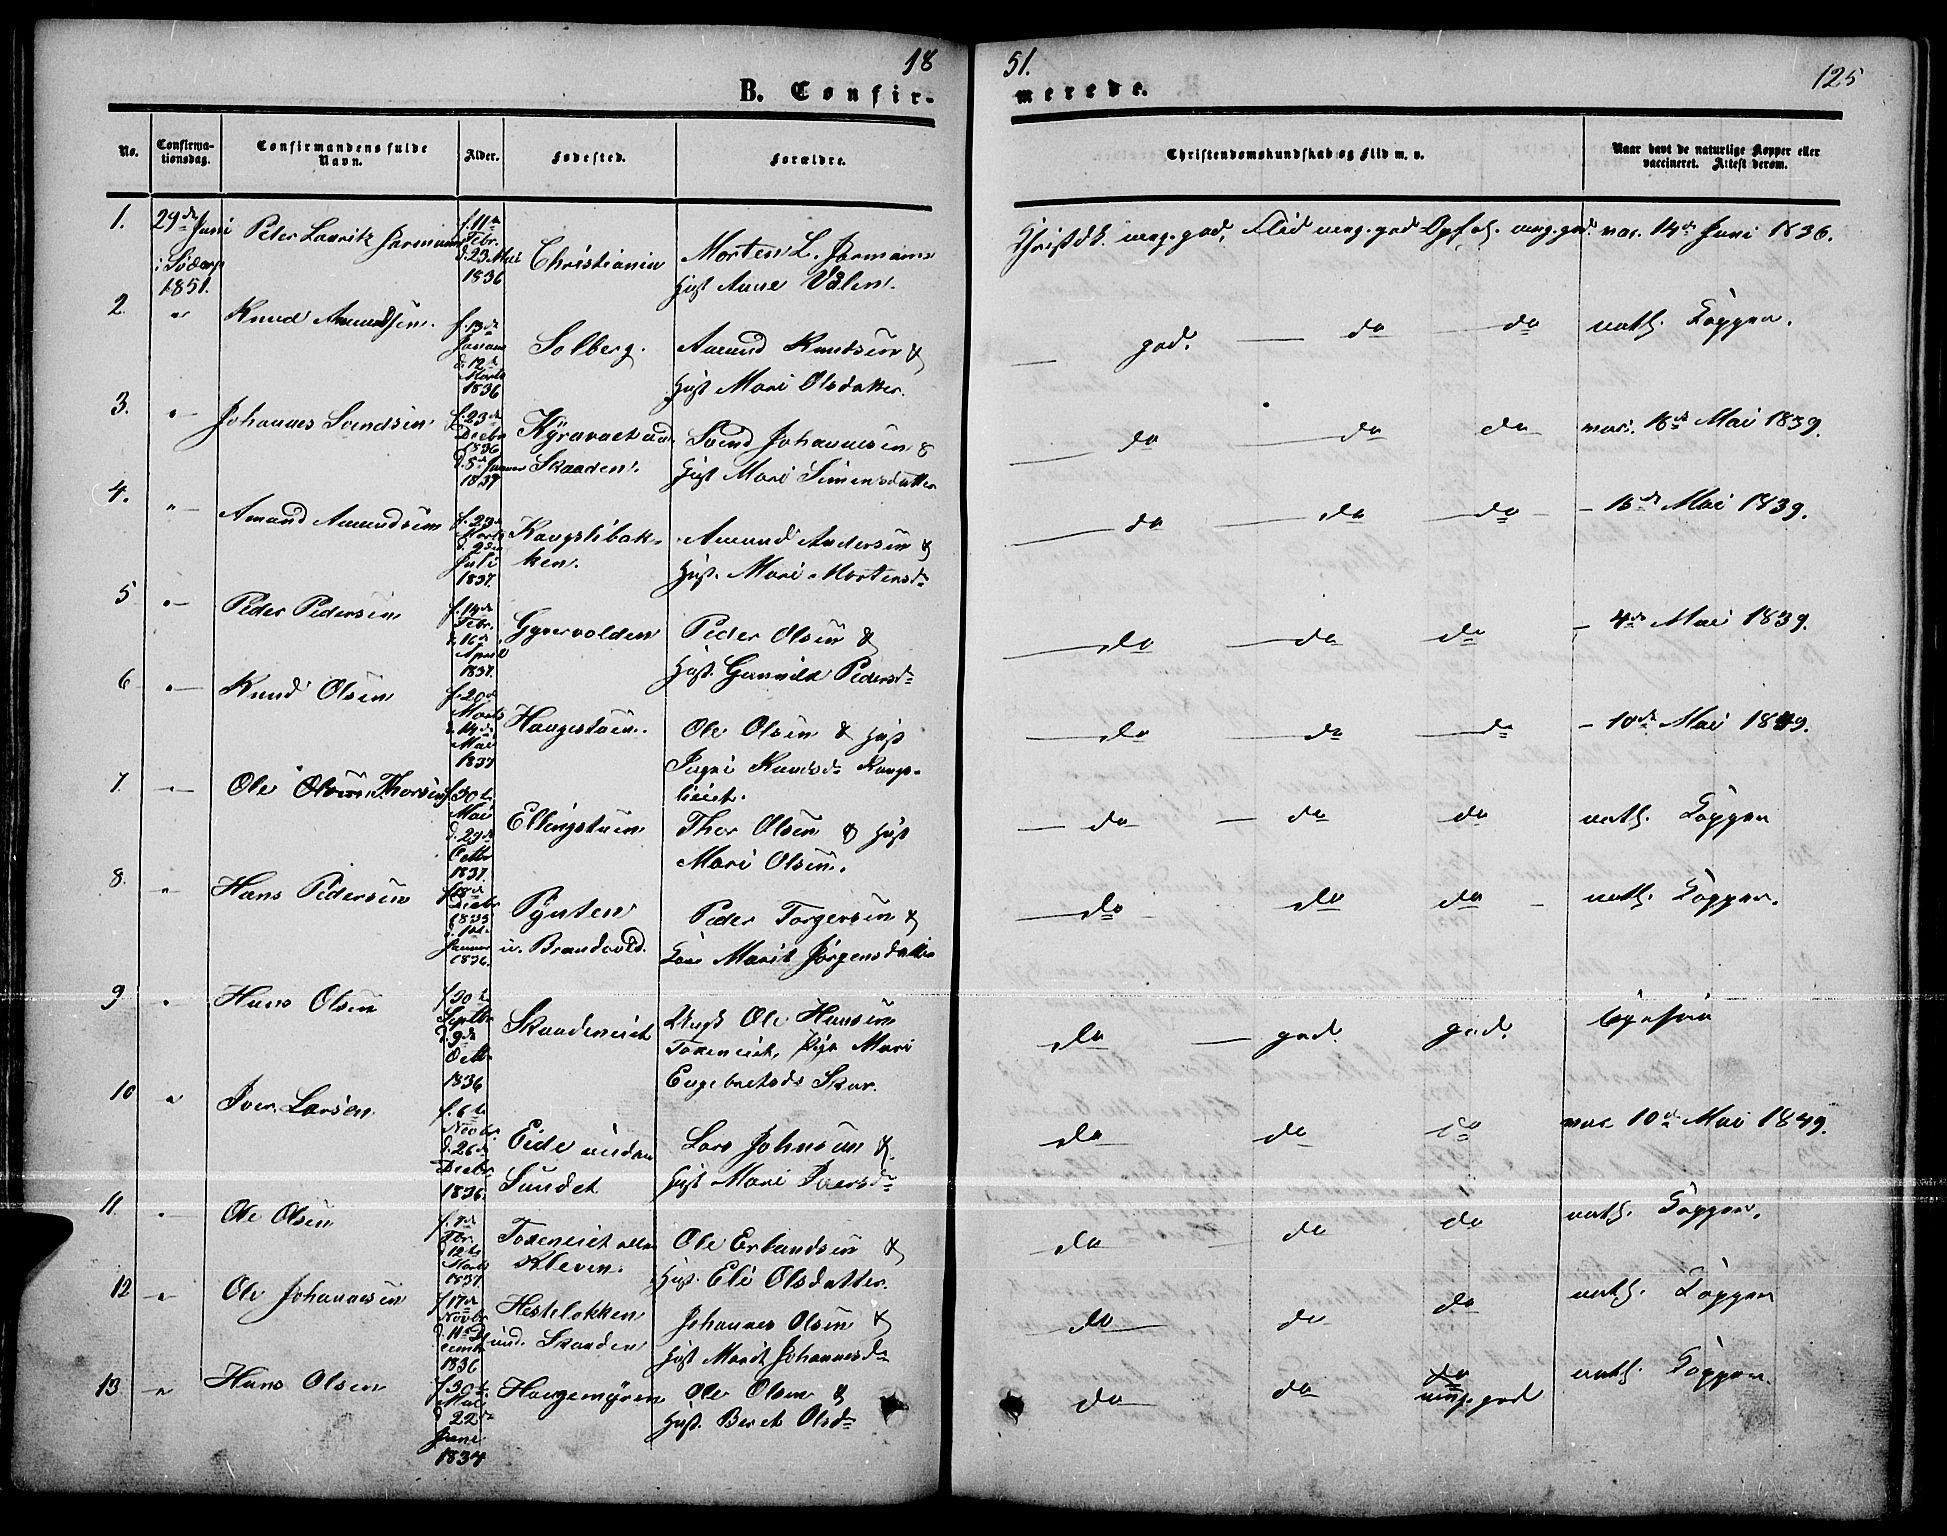 18
51.
125
B. Confir-
merede.
No.
Confirma-
tionsdag.
Confirmandens fulde
Navn.
Alder.
Fødested.
Forældre.
Christendomskundskab og Flid m. v.
Naar havt de naturlige Kopper eller
vaccineret. Attest derom.
1. 29de Juni Peter Lauritz
i Sødorp
1851.
f. 11te
Febr.
d. 23 Mai
1836
Christiania
Morten L.
Hust Anne
Christdk. meg. god, Flid meg. god Opf. meg. god.
vac. 14de Juni 1836.
2. " Knud Amundsen.
f. 13de
Januar
d. 12te
Marts
1836
Solberg.
Amund Knudsen &
Hust Mari Olsdatter.
god. do do
nath. Kopper.
3. " Johannes Svendsen
f. 23de
Decbr
1836
d. 5te Januar
1837
Skaaden.
Svend Johannesen &
Hust Mari Simensdatter
do do do
vac. 18de Mai 1839.
4. " Amund Amundsen
f. 23de
Marts
d. 2den
Juli
1837.
Kongslibak-
ken.
Amund Andersen &
Hust. Mari Mortensd.
do do do
- 18de Mai 1839.
5 " Peder Pedersen
f. 14de
Febr.
d. 16de
April
1837.
Peder Olsen &
Hust. Gunnild Pedersd.
do do do
- 4de Mai 1839.
6 " Knud Olsen
f. 20de
Marts
d. 14de
Mai
1837
Haugestuen.
Ole Olsen & Hust
Ingri Knudsd. Kongs-
lieiet.
do do do
- 10de Mai 1849.
7. " Ole Olsen Thorsen
f. 30te
Mai
d. 29de
Octbr
1837.
Ellingstuen
Thor Olsen & Hust
Mari Olsen.
do do do
nath. Kopper
8. " Hans Pedersen
f. 18de
Decbr
1835
d. 1ste
Januar
1836.
Pynten
u. Brandvold.
Peder Torgersen &
Kone Marit Jørgensdatter
do do do
nath. Kopper.
9 " Hans Olsen
f. 30te
Septbr
d. 9de
Octbr
1836
Skaadeneiet
Ungk. Ole Hansen
Toxeneiet, Pige Mari
Engebretsd. Skar.
do god. god.
10 " Iver Larsen
f. 6te
Novbr.
d. 26de
Decbr
1836.
Eide under
Sundet
Lars Johnsen &
Hust Mari Iversd.
do do do
vac 10de Mai 1849.
11. " Ole Olsen
12te
Marts
1837.
Toxeneiet eller
Kleven.
Ole Erlandsen &
Hust. Eli Olsdatter.
do do do
nath. Kopper.
12 " Ole Johannesen
f. 17de
Novbr
d. 11te De
cembr
1836
Hesteløkken
und. Skaaden
Johannes Olsen &
Hust Marit Johannesd.
do do do
nath. Kopper
13 " Hans Olsen
f. 30te
Mai
d. 22de
Juni
1834
Haugemyren
Ole Olsen &
Hust. Beret Olsd.
do do do
meg. god
nath. Kopper.